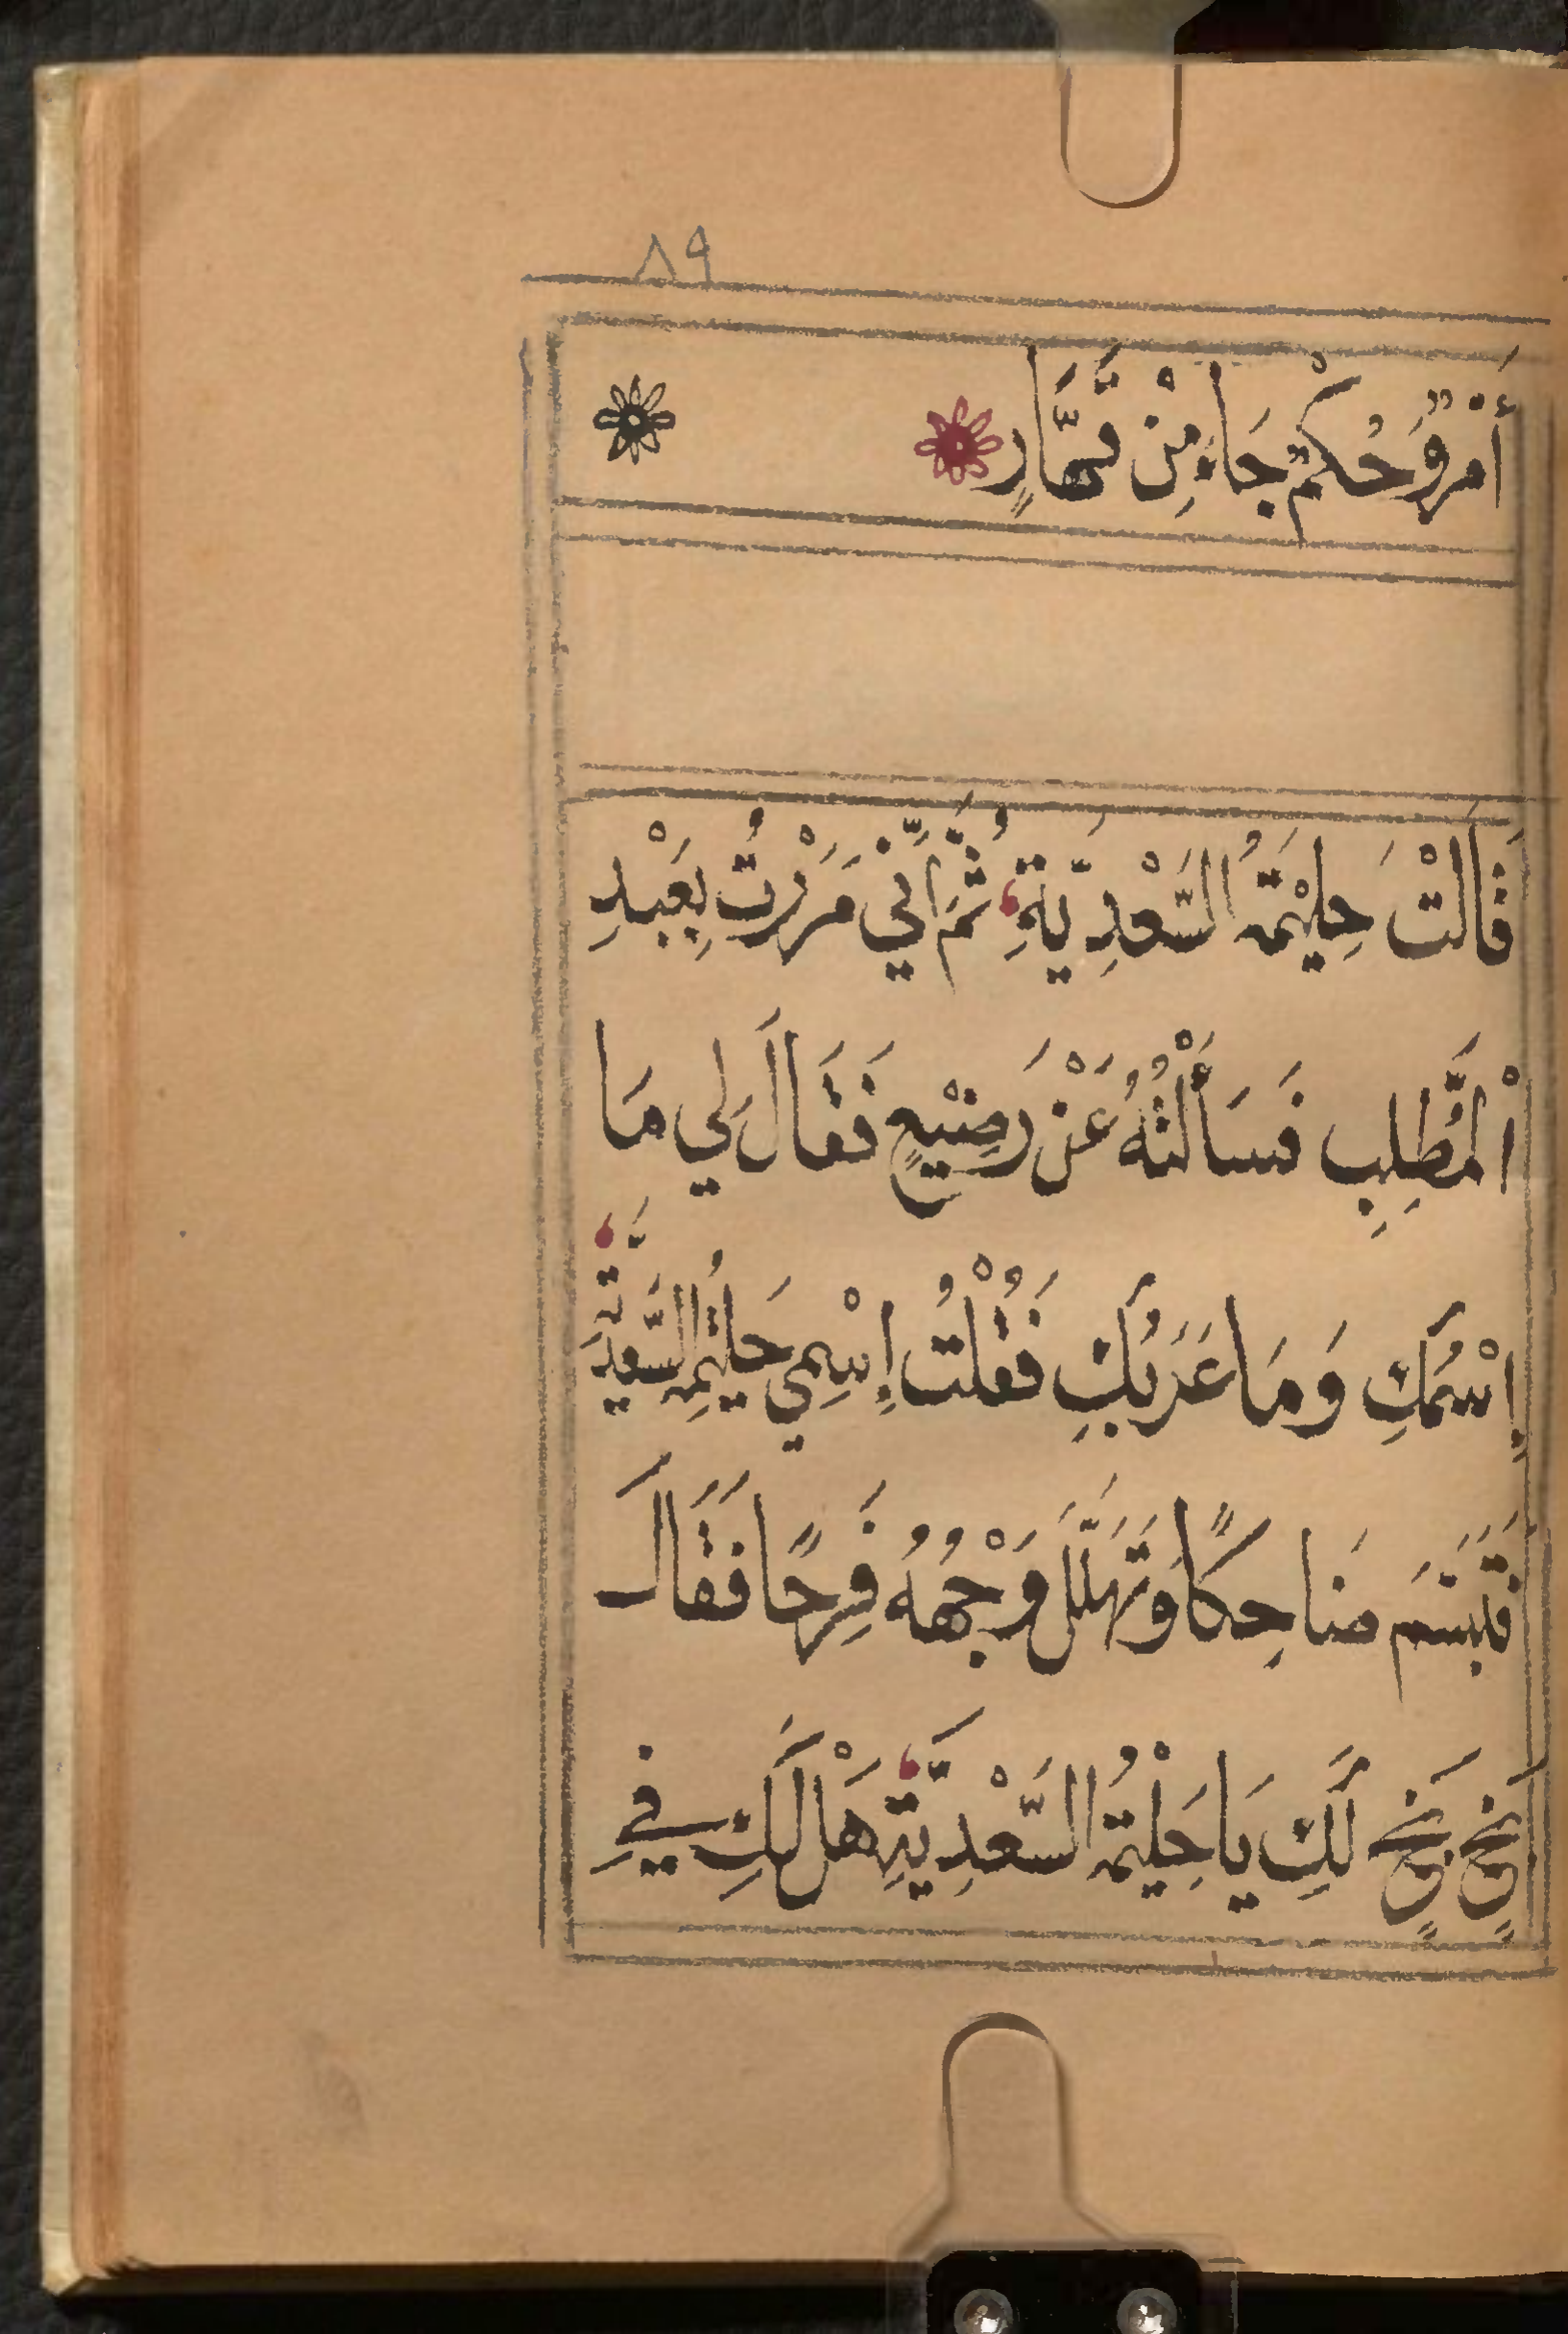 ٨٩
أَمْرٌ وَحُكْمٌ جَاءَ مِنْ قَهَّارٍ
قَالَتْ حَلِيْمَةُ السَّعْدِيَّةِ ثُمَّ اَنِّيْ مَرَرْتُ بِعَبْدِ
اْلمُطَّلِبِ فَسَأَلْتُهُ عَنْ رَضِيْعٍ فَقَالَ لِي مَا
إِسْمُكِ وَمَا عَرَبُكِ فَقُلْتُ إِسْمِي حَلِيْمَةُ السَّعْدِيَّةَ
فَتَبَسَّمَ ضَاحِكًا وَتَهَلَّلَ وَجْهُهُ فَرِحًا فَقَالَ
بَخٍ بَخٍ لَكِ يَا حَلِيْمَةُ السَّعْدِيَّةِ هَلْ لَكِ فِي